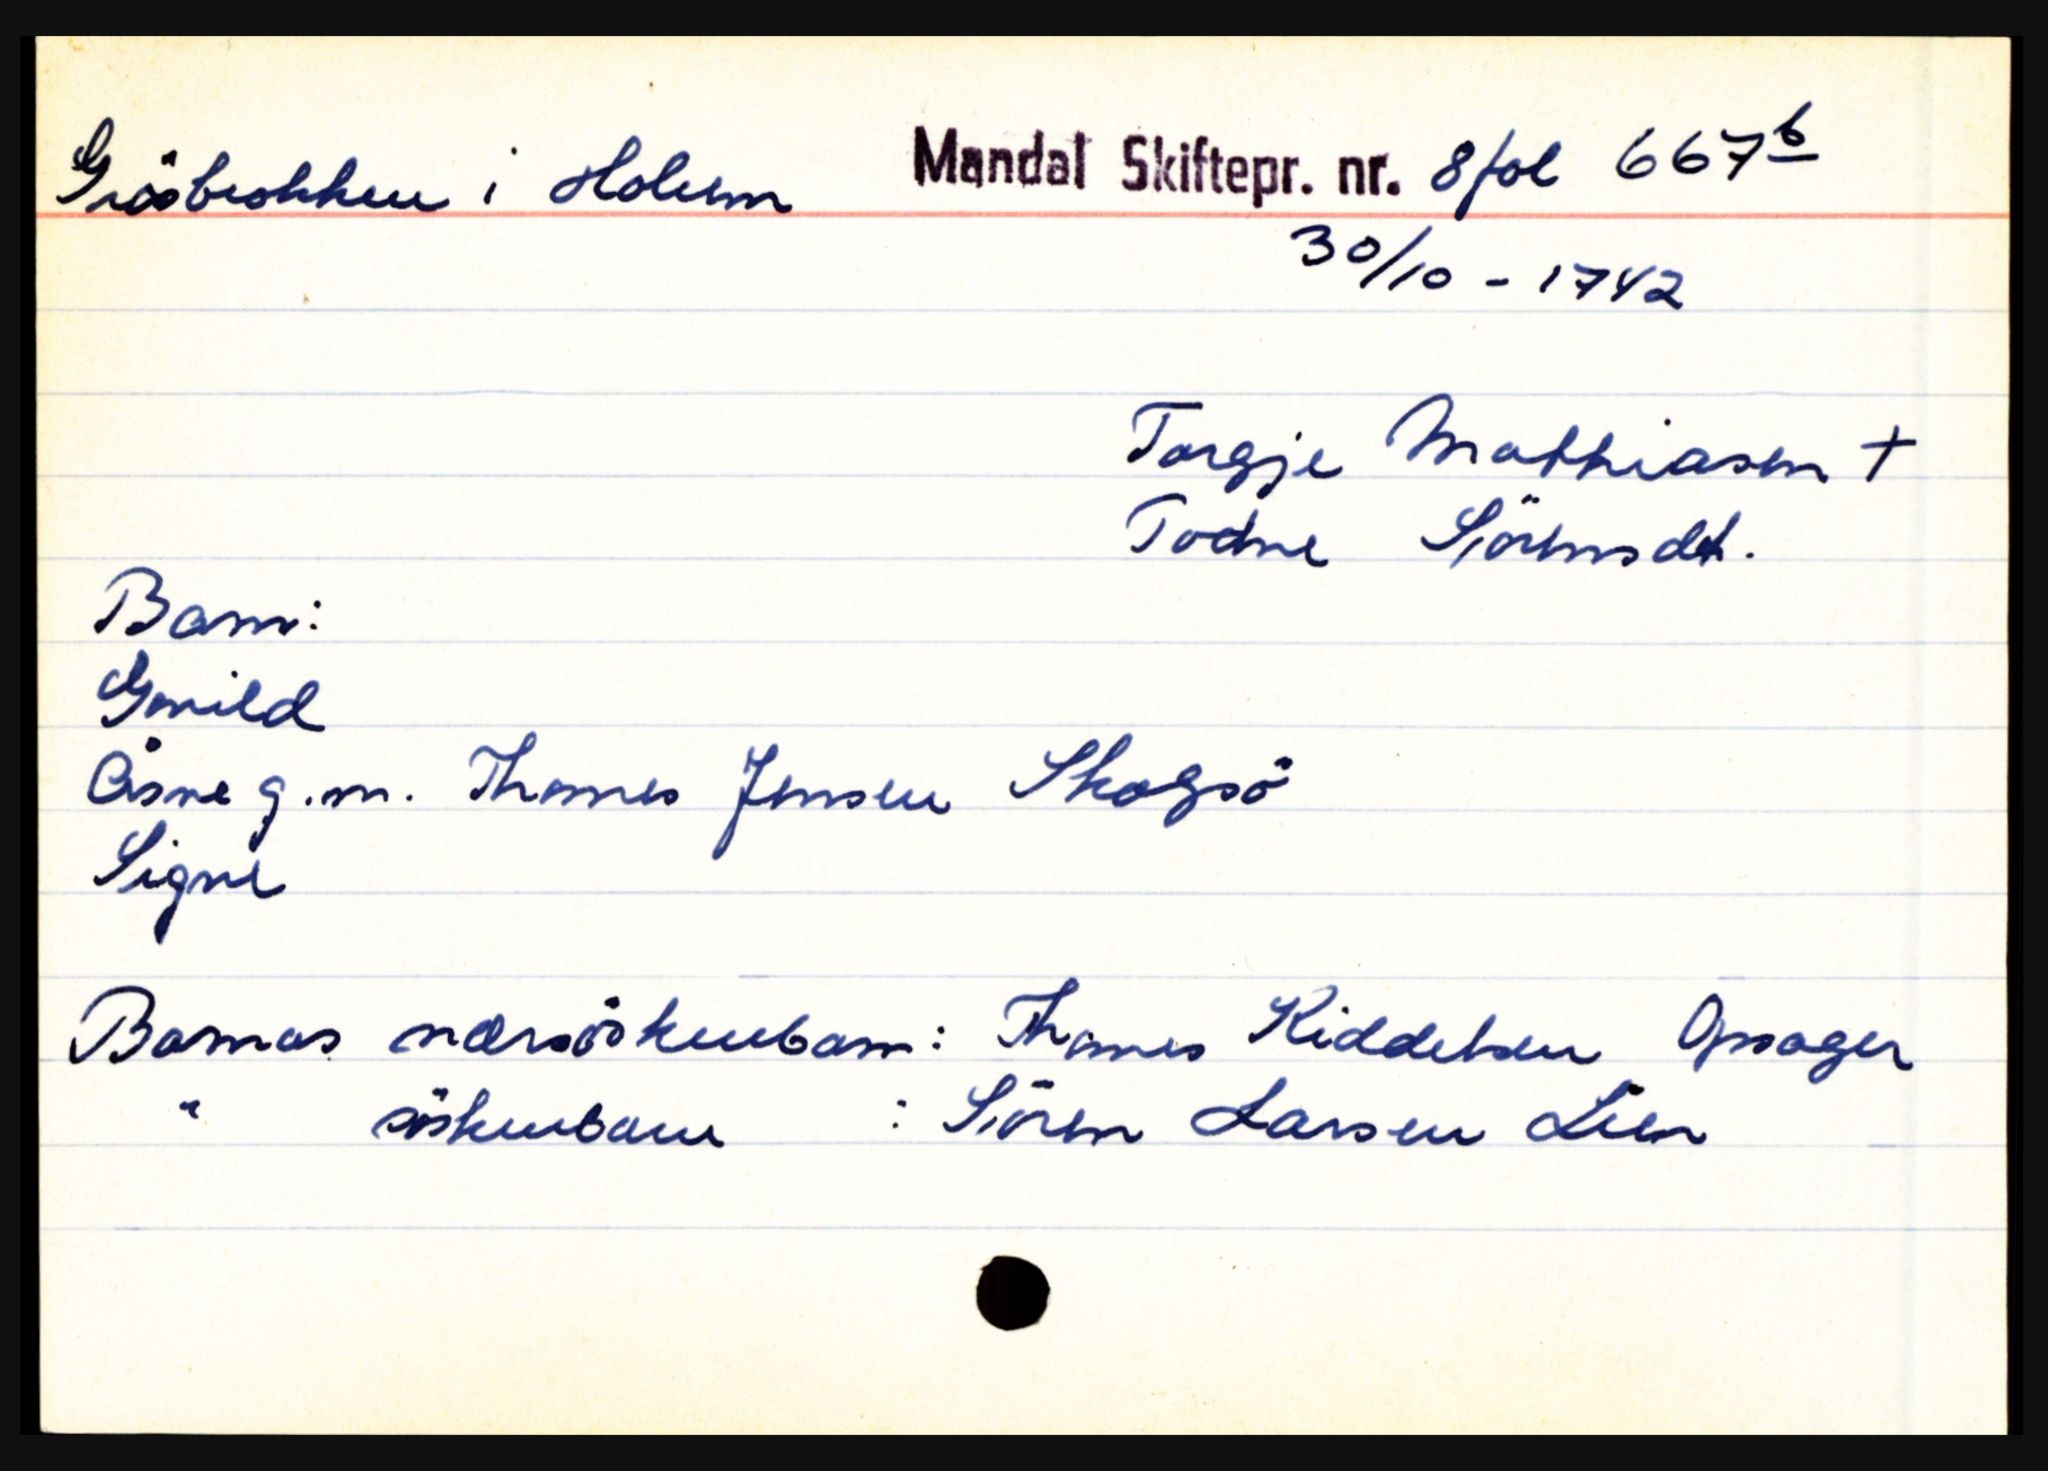 Gråsbrokken i Holum Mandal Skiftepr. nr. 8 fol 667b
30/10 - 1742
Torgje Mathiasen +
Todne Sörensdt.
Barn:
Gunild
Åsne g.m. Thomes Jensen Skogsö
Signe
Barnas nærsöskenbarn: Thomes Kiddelsen Opsager
" söskenbarn : Sören Larsen Lien